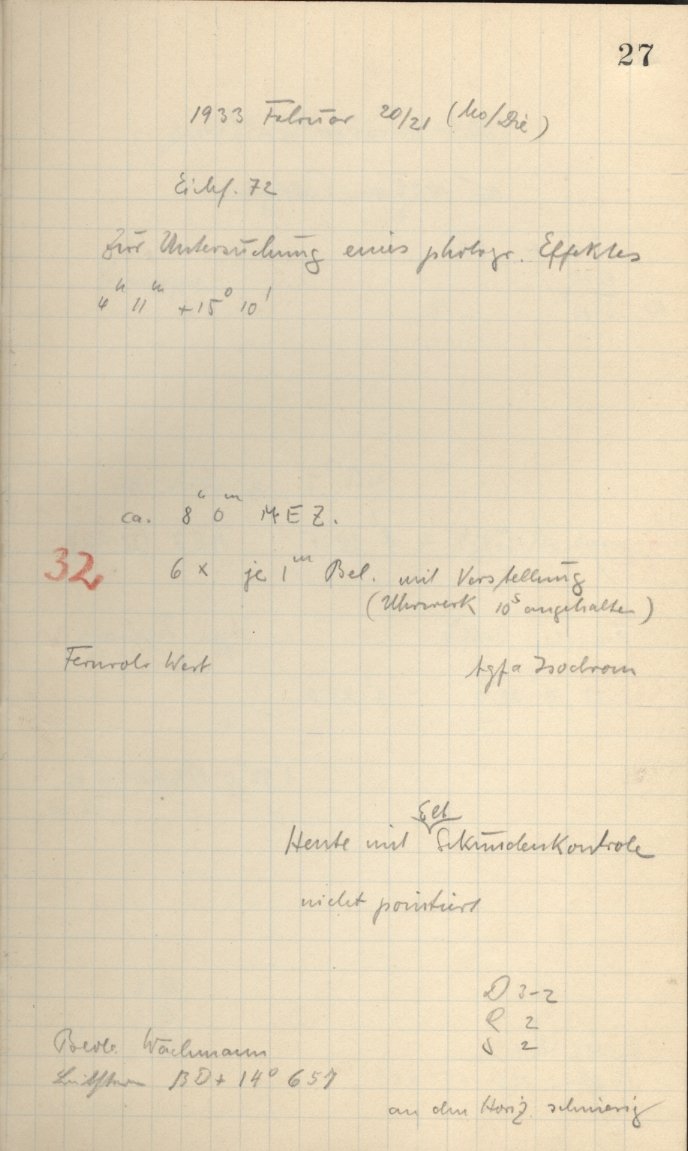 27
1933 Februar 20/21 (Mo/Die)
Eichf. 72
Zur Untersuchung eines photogr. Effektes
4h 11m +15° 10'
ca. 8h 0m MEZ.
32 6 x je 1m Bel. mit Verstellung
(Uhrwerk 10s angehalten)
Fernrohr West Agfa Isochrom
Heute mit Sekundenkontrole
nicht pointiert
D 3-2
R 2
S 2
Beob. Wachmann
Leitstern BD + 14° 657
an den Horiz. schmierig